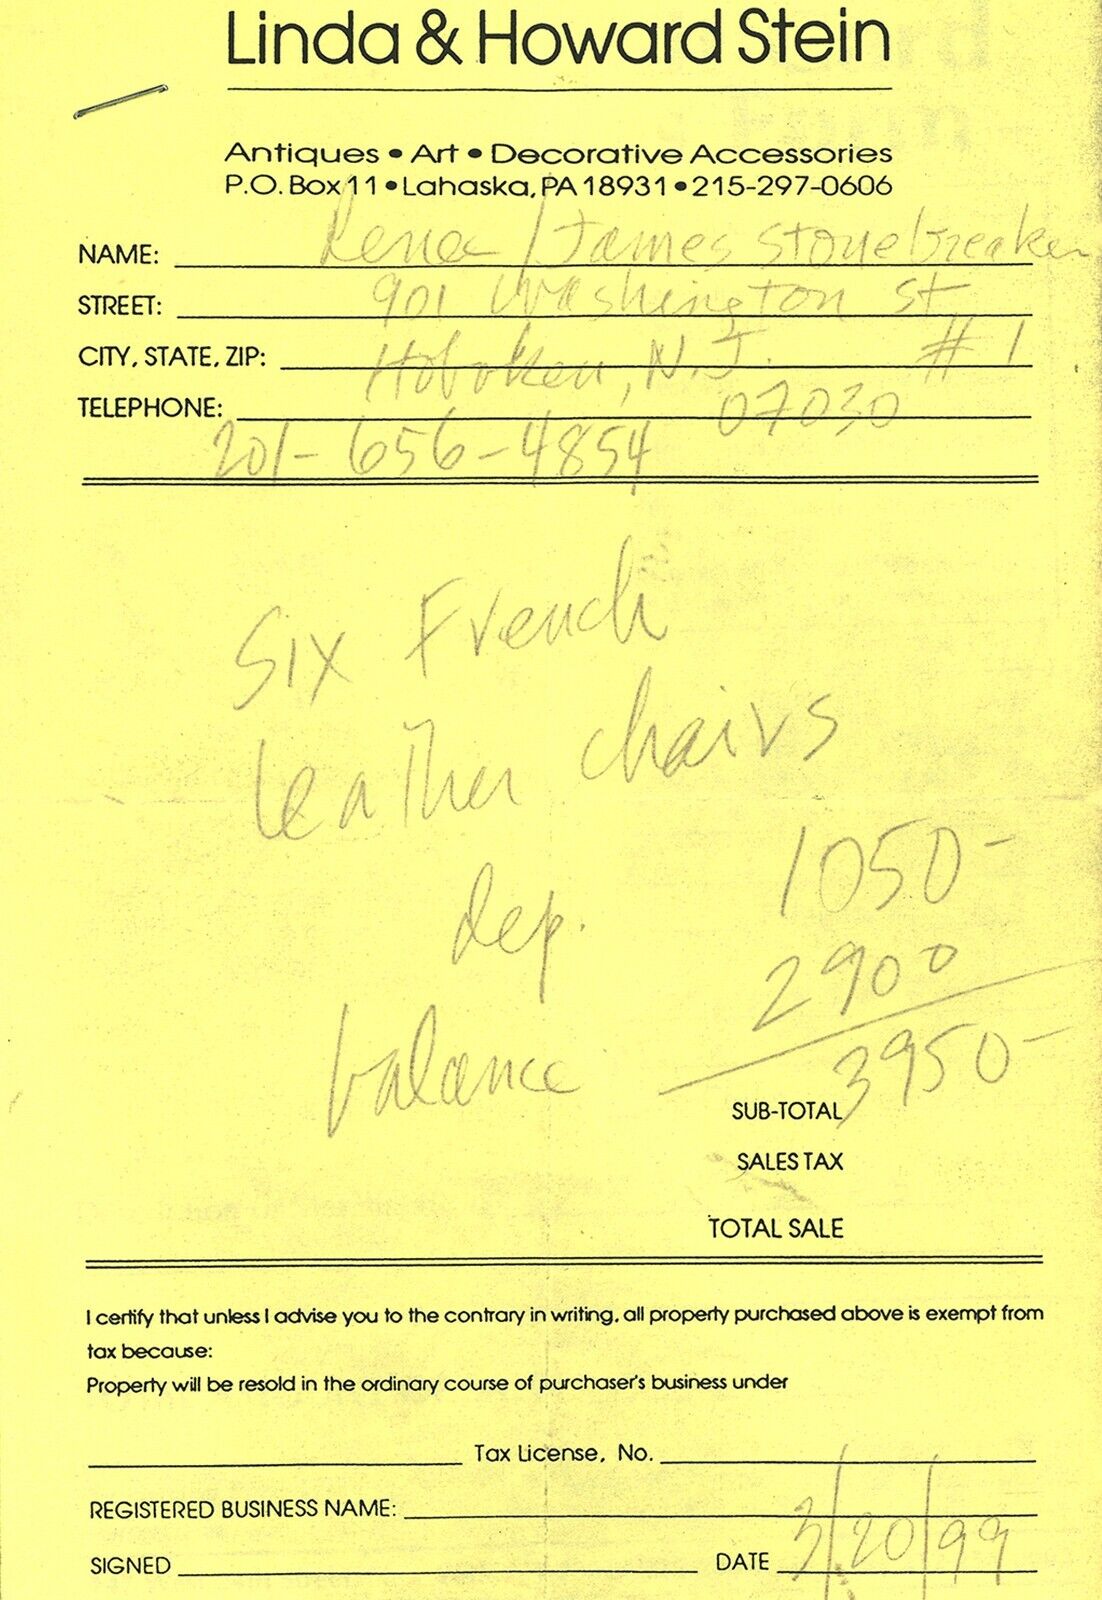 Linda & Howard Stein
Antiques • Art • Decorative Accessories
P.O. Box 11 • Lahaska, PA 18931 • 215-297-0606
NAME: Renee / James Stonebreaker
STREET: 901 Washington St
CITY, STATE, ZIP: Hoboken, N.J. #1
TELEPHONE: 07030
201-656-4854
Six French
leather chairs
dep. 1050-
balance 2900
3950-
SUB-TOTAL
SALES TAX
TOTAL SALE
I certify that unless I advise you to the contrary in writing, all property purchased above is exempt from
tax because:
Property will be resold in the ordinary course of purchaser's business under
Tax License, No.
REGISTERED BUSINESS NAME:
SIGNED DATE 3/20/99